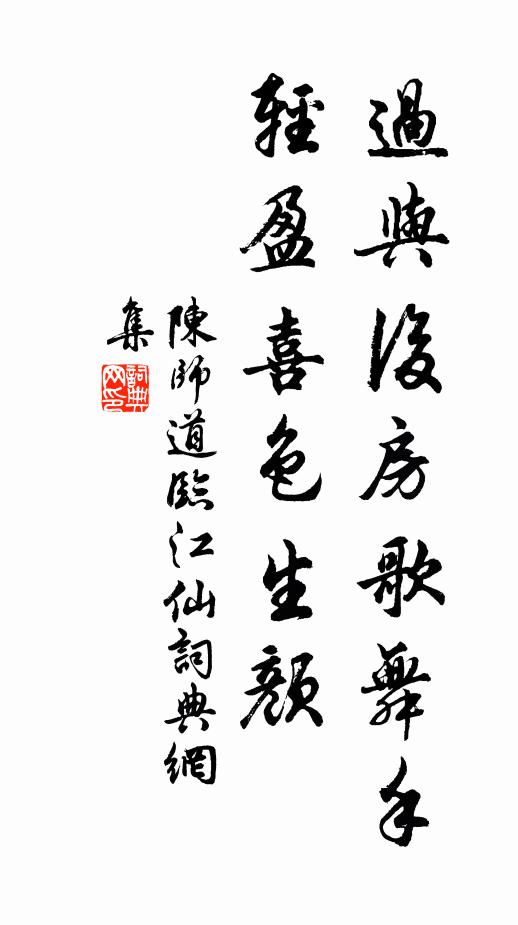 過與後房歌舞手
輕盈喜色生顏
陳師道臨江仙詞典網
集
詞典
网印